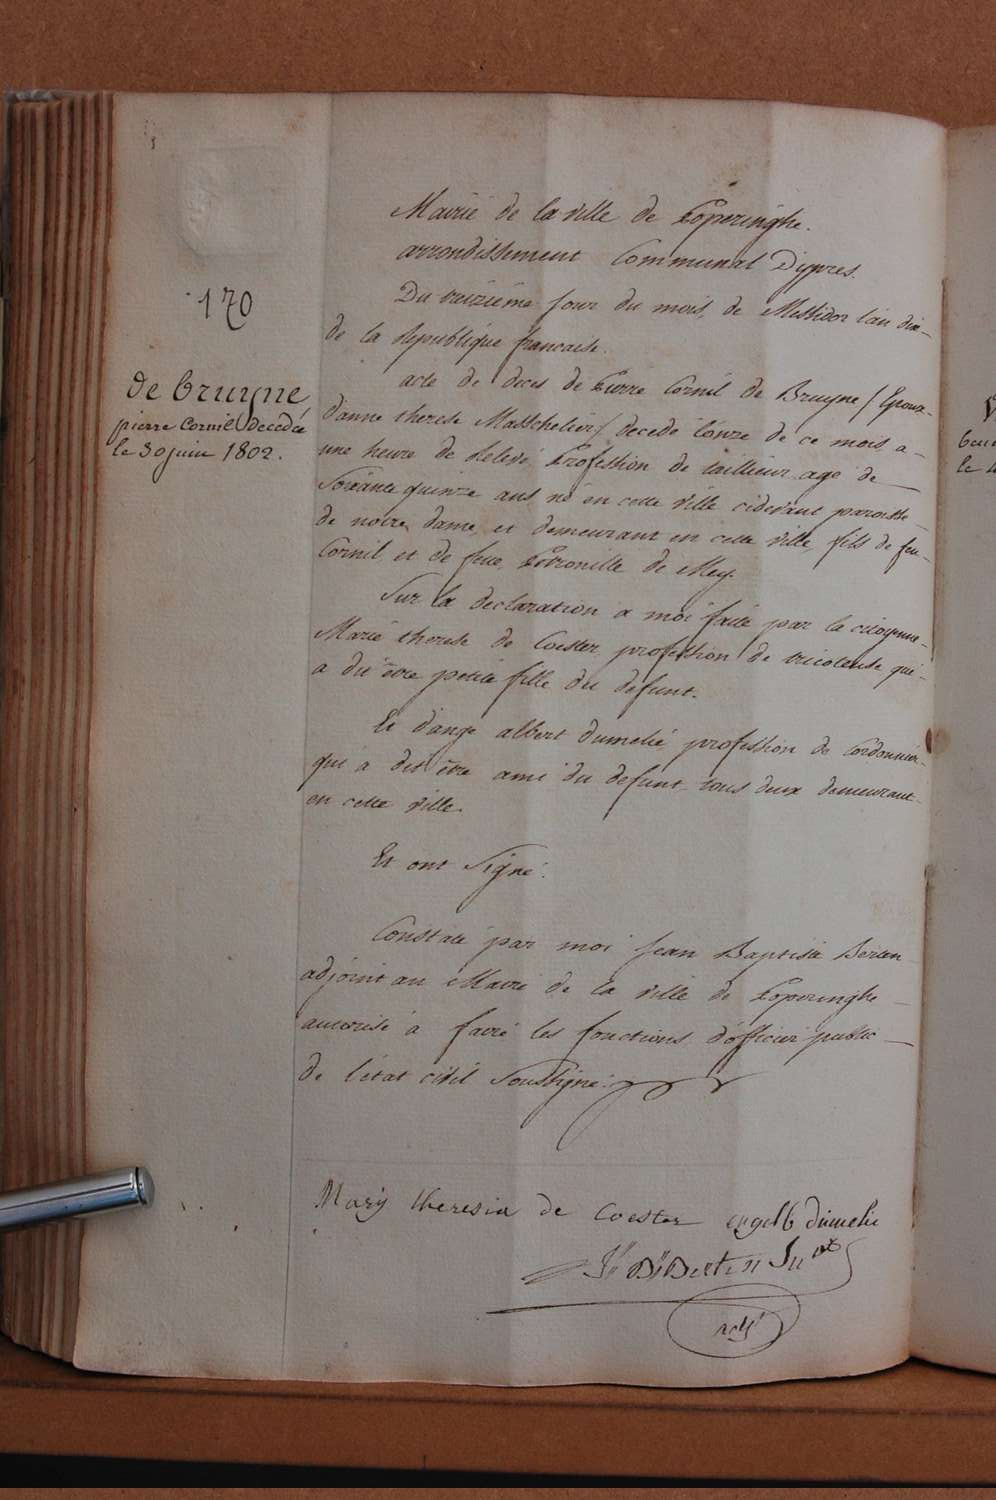 170
de bruyne
pierre Cornil decedée
le 30 juin 1802.
Mairie de la ville de Poperinghe.
arrondissement Communal D'ypres.
Du treizième jour du mois, de Messidor l'an dix-
de la Republique francaise.
acte de deces de Pierre Cornil de Bruyne / Epoux-
d'anne therese Masschelier / decede l'onze de ce mois, a-
une heure de Relevé, Profession de tailleur agé de
Soixante quinze ans né en cette ville cidevant paroisse
de notre dame, et demeurant en cette ville, fils de feu-
Cornil, et de feue Petronille de Mey.
Sur la declaration a moi faite par la citoyenne-
Marie therese de Coester profession de tricoteuse qui-
a dit être petite fille du defunt.
Et d'ange albert dumelié profession de Cordonnier-
qui a dit être ami du defunt tous deux demeurant-
en cette ville.
Et ont Signé.
Constaté par moi Jean Baptiste Berten
adjoint au Maire de la ville de Poperinghe
autorisé a faire les fonctions d'officier public
de l'état civil Soussigné.
Marij theresia de Coester engelb dumelie
Jn Bt Berten
adjt
Beue
le